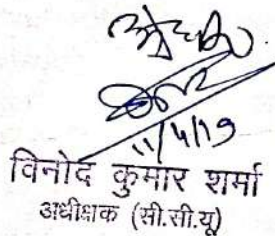 11/4/19
विनोद कुमार शर्मा
अधीक्षक (सी.सी.यू)